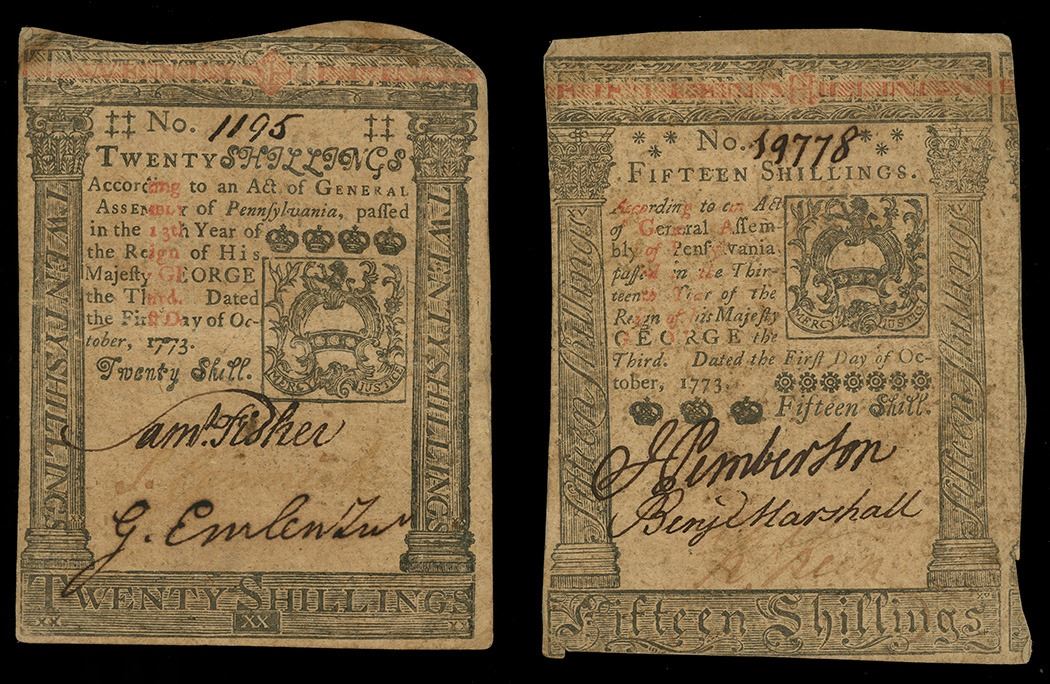 ‡‡ No. 1195 ‡‡
TWENTY SHILLINGS
According to an Act of GENERAL
ASSEMBLY of Pennſylvania, paſſed
in the 13th Year of
the Reign of His
Majeſty GEORGE
the Third. Dated
the Firſt Day of Oc-
tober, 1773.
Twenty Shill.
MERCY JUSTICE
Samˡ. Fisher
G. Emlen Junʳ
TWENTY SHILLINGS
TWENTY SHILLINGS
TWENTY SHILLINGS
XX XX XX
No. 19778
FIFTEEN SHILLINGS.
According to an Act
of General Aſſem-
bly of Penſylvania
paſſed in the Thir-
teenth Year of the
Reign of his Majeſty
GEORGE the
Third. Dated the Firſt Day of Oc-
tober, 1773.
Fifteen Shill.
MERCY JUSTICE
J Pemberton
Benjⁿ Marshall
Fifteen Shillings
Fifteen Shillings
Fifteen Shillings